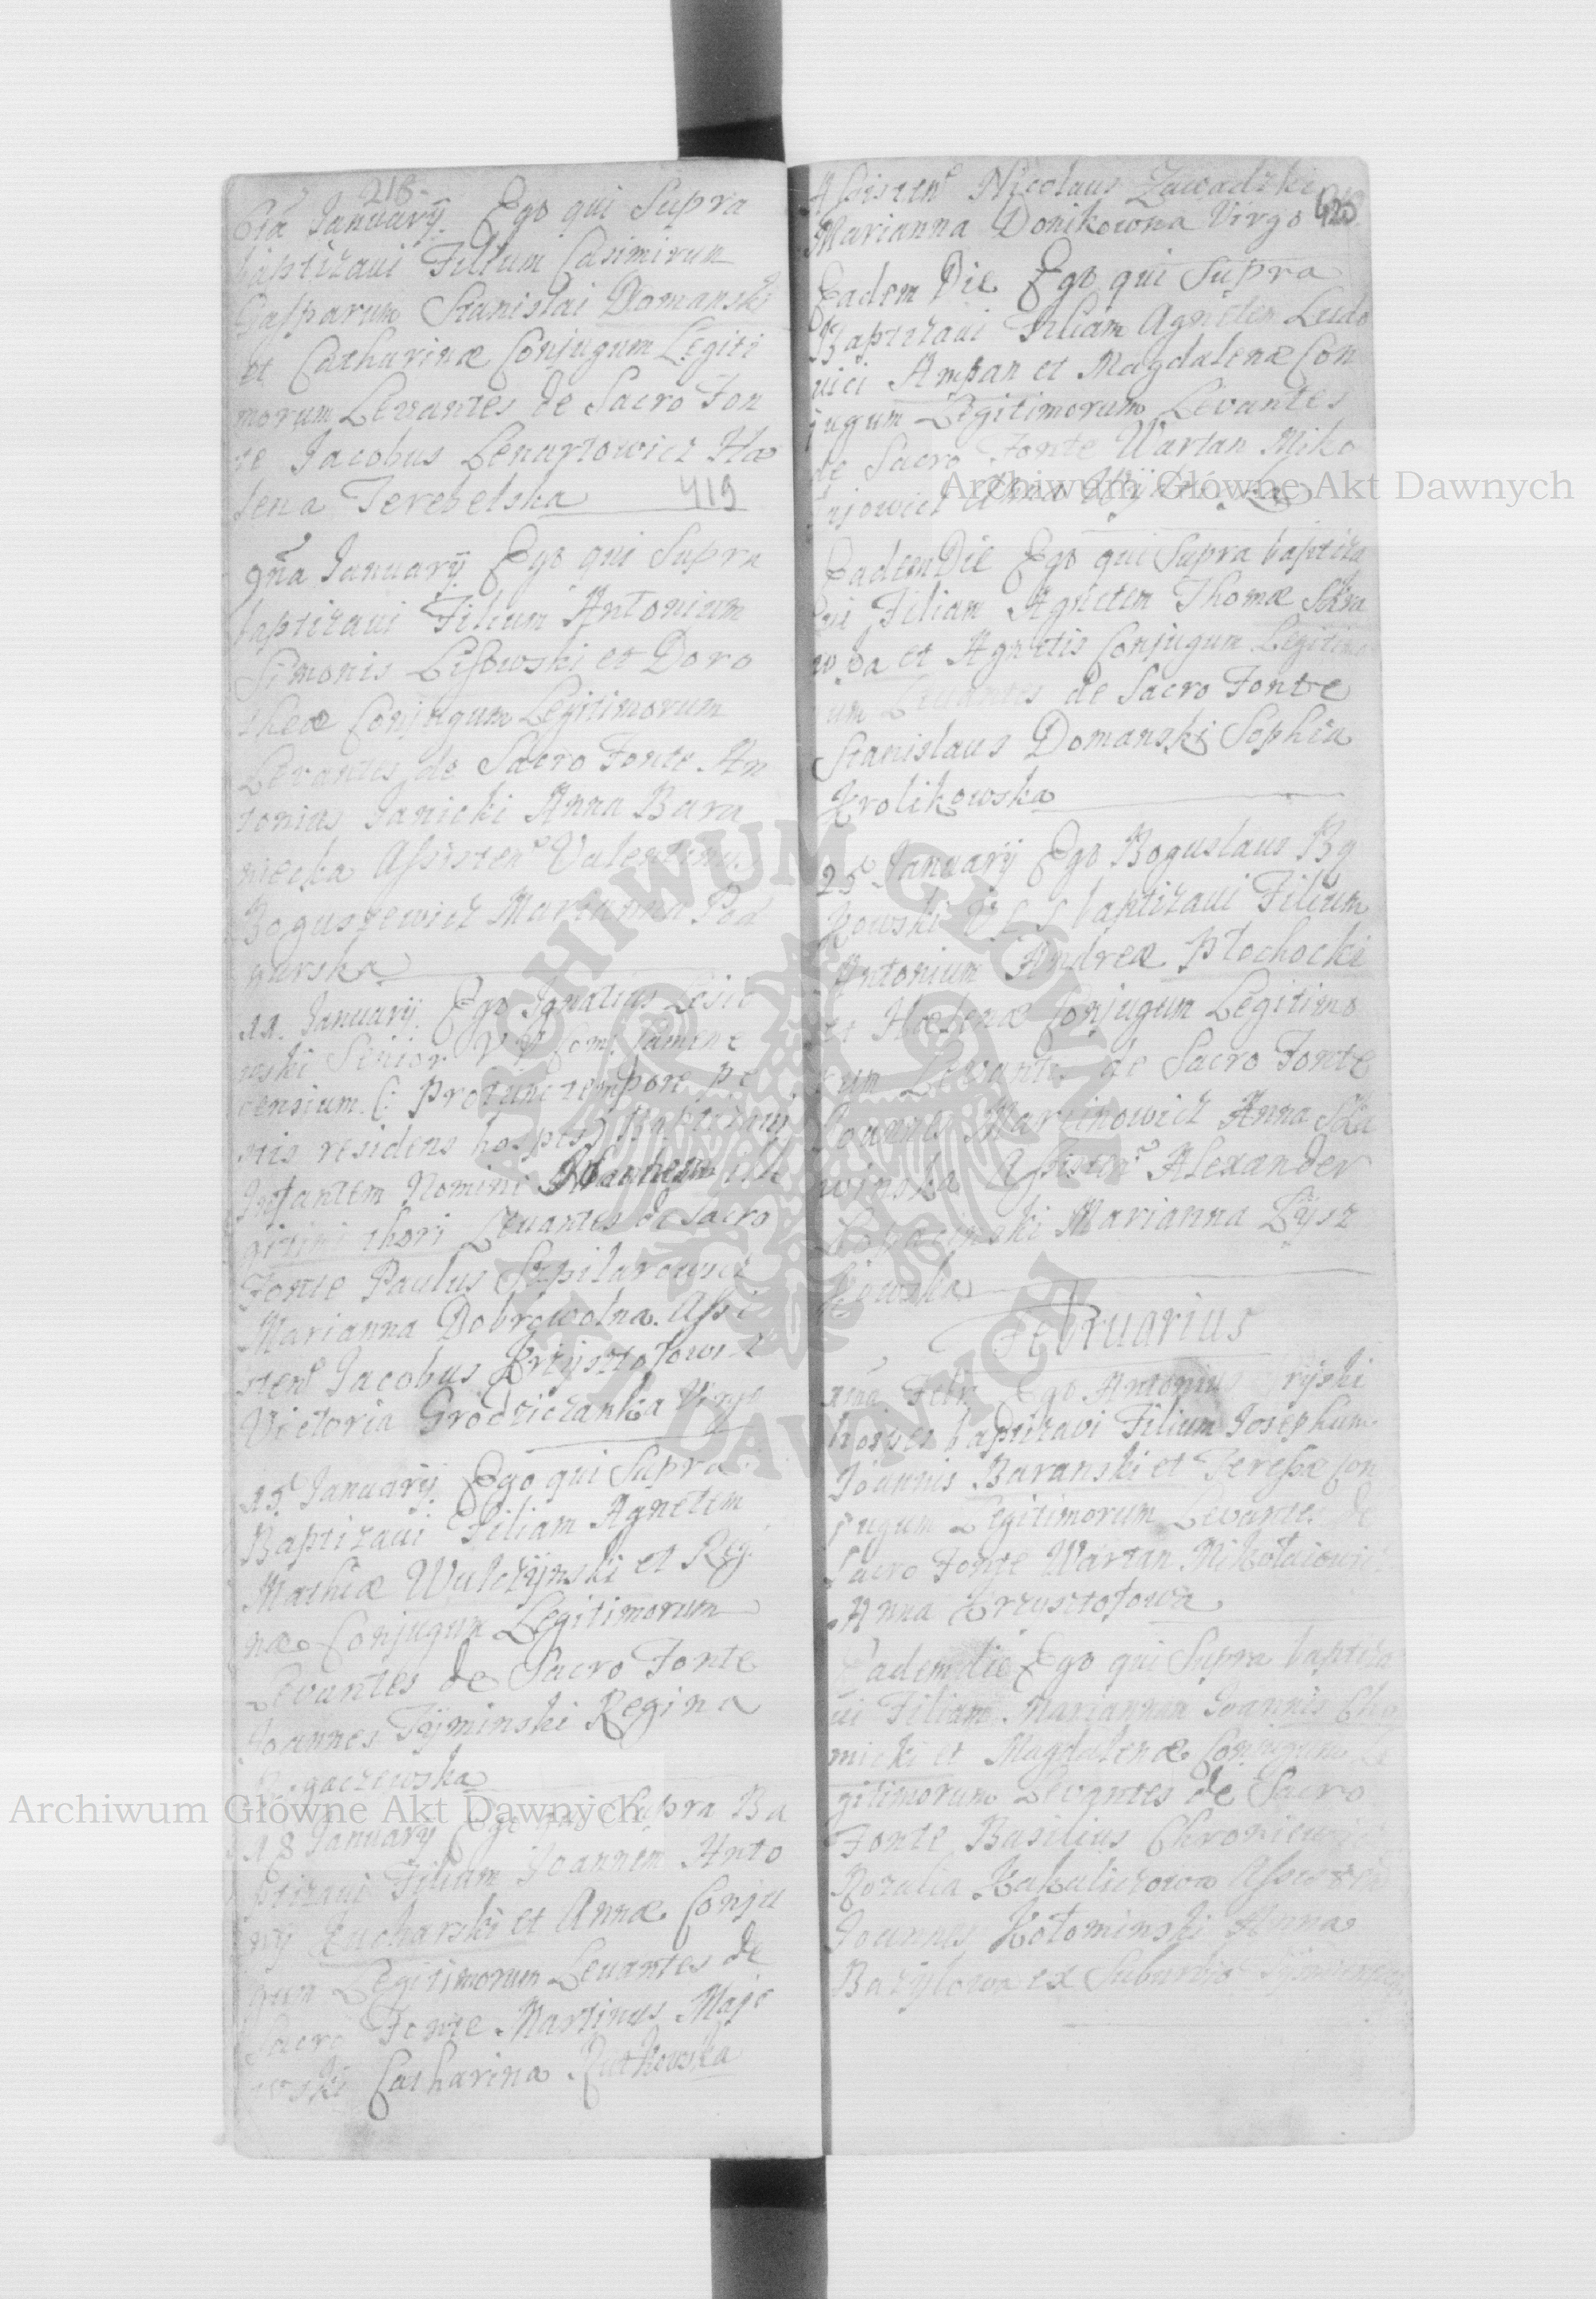 218
6ta Januarij. Ego qui Supra
baptizaui Filium Casimirum
Gasparum Stanislai Domanski
et Catharinæ Conjugum Legiti
morum Levantes de Sacro Fon
te Jacobus Lenartowicz Hæ
lena Terebelska 419
9na Januarij Ego qui Supra
baptizaui Filium Antonium
Simonis Lisowski et Doro
theæ Conjugum Legitimorum
Levantes de Sacro Fonte An
tonius Janicki Anna Bara
niecka Assisten Valentinus
Boguszewicz Marianna Pod
gurska
11 Januarij Ego Ignatius
Senior
censium (: Protunc tempore
residens hospes) Baptizaui
Infantem Nomine ille
gitimi thori Levantes de sacro
Fonte Paulus Szpilarowicz
Marianna Dobrowolna. Assi
sten Jacobus Krzijsztofowicz
Victoria Grodziczanka Virgo
15 Januarij Ego qui Supra
Baptizaui Filiam Agnetem
Mathiæ Wulczijnski et Regi
næ Conjugum Legitimorum
Levantes de Sacro Fonte
Joannes Tijminski Regina
18 Januarij Ego qui Supra Ba
ptizaui Filium Joannem Anto
nij Kucharski et Annæ Conju
gum Legitimorum Leuantes de
Sacro Fonte Martinus Maje
wski Catharina Rutkowska
Assisten Nicolaus Zawadzki
Marianna Donikowna Virgo 420
Eadem Die Ego qui Supra
Baptizaui Filiam Agnetem Ludo
uici Ampan et Magdalenæ Con
jugum Legitimorum Levantes
de Sacro Fonte Wartan Miko
Anna
Eadem Die Ego qui Supra baptiza
ui Filiam Agnetem Thomæ
et Agnetis Conjugum Legitimo
rum Levantes de Sacro Fonte
Stanislaus Domanski Sophia
Krolikowska
25 Januarij Ego Boguslaus By
kowski baptizaui Filium
Antonium Andreæ Płochocki
et Hælenæ Conjugum Legitimo
rum Levantes de Sacro Fonte
Joannes Marcinowicz Anna
Assisten Alexander
Marianna Lijsz
kowska
Februarius
1ma Febr. Ego Antonius
baptizavi Filium Josephum
Joannis Baranski et Teresæ Con
jugum Legitimorum Levantes de
Sacro Fonte Wartan Mikołaiowicz
Anna Krzysztofowa
Eadem die Ego qui Supra baptiza
ui Filiam Mariannam Joannis Cho
micki et Magdalenæ Conjugum Le
gitimorum Levantes de Sacro
Fonte Basilius Chroniewicz
Rozalia Kakuliczowa Assisten
Joannes Kołominski Anna
Bazylowa ex Suburbio
Archiwum Główne Akt Dawnych
Archiwum Główne Akt Dawnych
ARCHIWUM GŁÓWNE AKT DAWNYCH